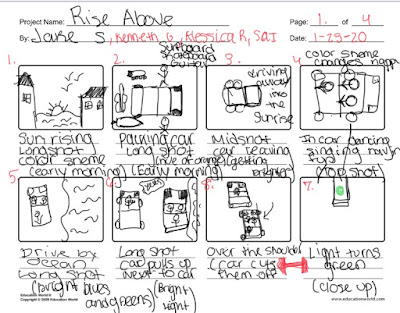 Project Name: Rise Above
Page: 1. of 4
By: Jake S, Kenneth G, Klessica R, Sai
Date: 1-29-20
1.
2.
Surfboard
skateboard
guitar
3.
driving
away
into
the
sunrise
4
color sheme
changes happy
Sun rising
Longshot
color sheme
(early morning)
Packing car
Long shot
(hue of orange)
(Early morning)
Midshot
car leaving
(getting
brighter)
In car dancing
singing having
fun
(Top shot)
5
6
blues
8.
7.
Drive by
ocean
Long shot
(Bright blues
and greens)
Long shot
car pulls up
next to car
(Bright
light)
over the shoulder
(car cuts
them off
Light turns
green
(close up)
Education World®
Copyright © 2009 Education World
www.educationworld.com